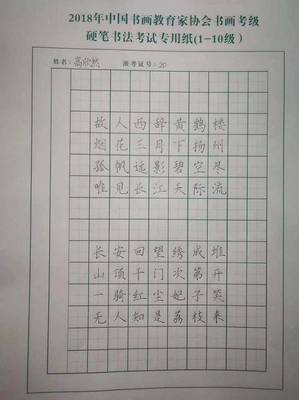 2018年中国书画教育家协会书画考级
硬笔书法考试专用纸(1-10级)
姓名:高欣然 准考证号:20
故人西辞黄鹤楼
烟花三月下扬州
孤帆远影碧空尽
唯见长江天际流
长安回望绣成堆
山顶千门次第开
一骑红尘妃子笑
无人知是荔枝来